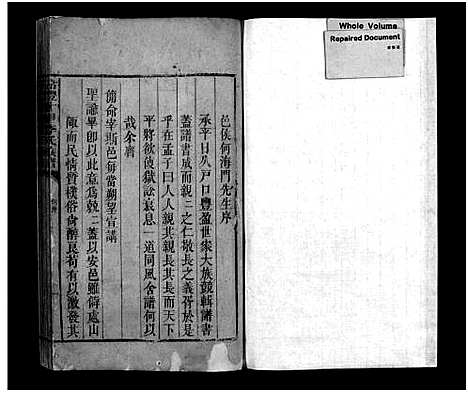 Whole Volume
Repaired Document
邑侯何海門先生序
承平日久戶口豐盈世家大族競輯譜書
蓋譜書成而親之之仁敬長之義胥於是
乎在孟子曰人人親其親長其長而天下
平將欲使獄訟衰息一道同風舍譜何以
哉余膺
簡命宰斯邑每當朔望宣講
聖諭畢即以此意為兢之蓋以安邑雖僻處山
陬而民情質樸俗尚醇良苟有以激發其